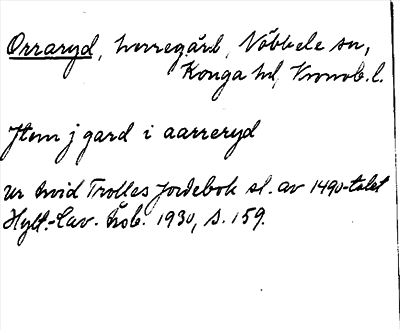 Orraryd, herregård, Nöbbele sn,
Konga hd, Kronob. l.
Item j gard i aarreryd
ur Arvid Trolles Jordebok sl. av 1490-talet
Hylt.-Cav. Årsb. 1930, s. 159.